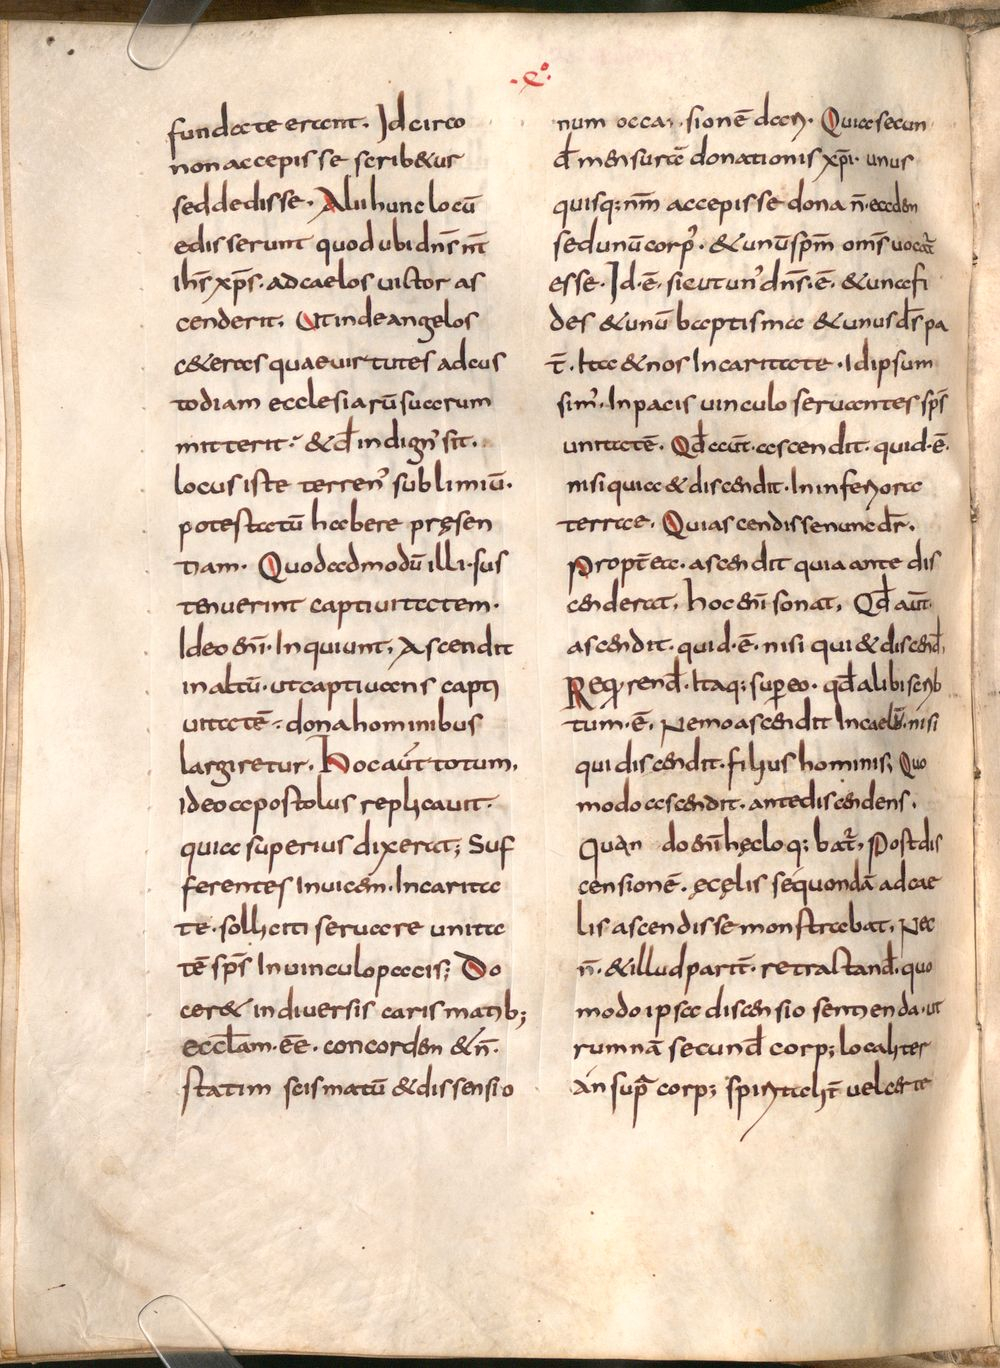 ·e·
fundate erant. Idcirco
non accepisse scrib&ur
sed dedisse. Alii hunc locū
edisserunt quod ubi dn̄s nr̄
ih̄s xp̄s. ad caelos victor as
cenderit. Ut inde angelos
c&eras quae virtutes ad cus
todiam ecclesiarū suarum
mitterit. & qđ indign' sit.
locus iste terren' sublimiū.
potestatū habere pręsen
tiam. Quo admodū illi sus
tenuerint captivitatem.
Ideo eni. Inquiunt, Ascendit
in altū. ut captivans capti
vitatē. dona hominibus
largiretur. Hoc aūt totum,
ideo apostolus replicavit.
quia superius dixerat; Suf
ferentes Invicem. In carita
te. solliciti servare unita
tē sp̄s In vinculo pacis; Do
cer& in diversis carismatib;
eccl̄am. ēē. concordem & n̄.
statim scismatū & dissensio
num occa sionē dari. Quia secun
đ mensurā donationis xp̄i. unus
quisq; nr̄m accepisse dona n̄. eadem
sed unū corp'. & unū sp̄m om̄s vocat̄
esse. Id. ē. sicut un' dn̄s. ē. & una fi
des & unū baptisma & unus d̄s pa
t̄. Ita & nos In caritate. Id ipsum
sim'. In pacis vinculo servantes sp̄s
unitatē. Qđ aūt. ascendit. quid. ē.
nisi quia & discendit. In inferiora
terrae. Qui ascendisse nunc dr̄.
Propt̄ea. ascendit quia ante dis
cenderat. hoc eni sonat, Qđ aūt
ascendit. quid. ē. nisi qui & discenđ.
Requirenđ. Itaq; super eo. qđ alibi scrib
tum. ē. Nemo ascendit In caelū. nisi
qui discendit. filius hominis; Quo
modo ascendit. ante discendens.
Quan do eni hęc loq; bat', Post dis
censionē. ę cęlis sequondā ad cae
lis ascendisse monstrabat. Nec
n̄. & illud parit̄. retractanđ. quo
modo ipsa discensio sentienda. ut
rumnā secunđ corp; localiter
án supra corp; spiritalit̄ vel certe